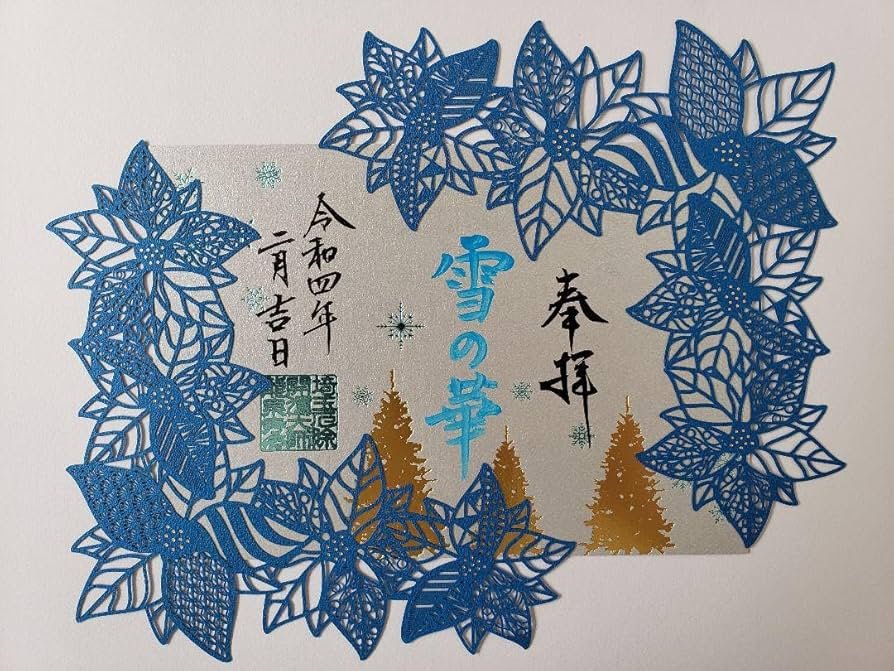 奉拝
雪の華
令和四年
二月吉日
埼玉厄除
開運大師